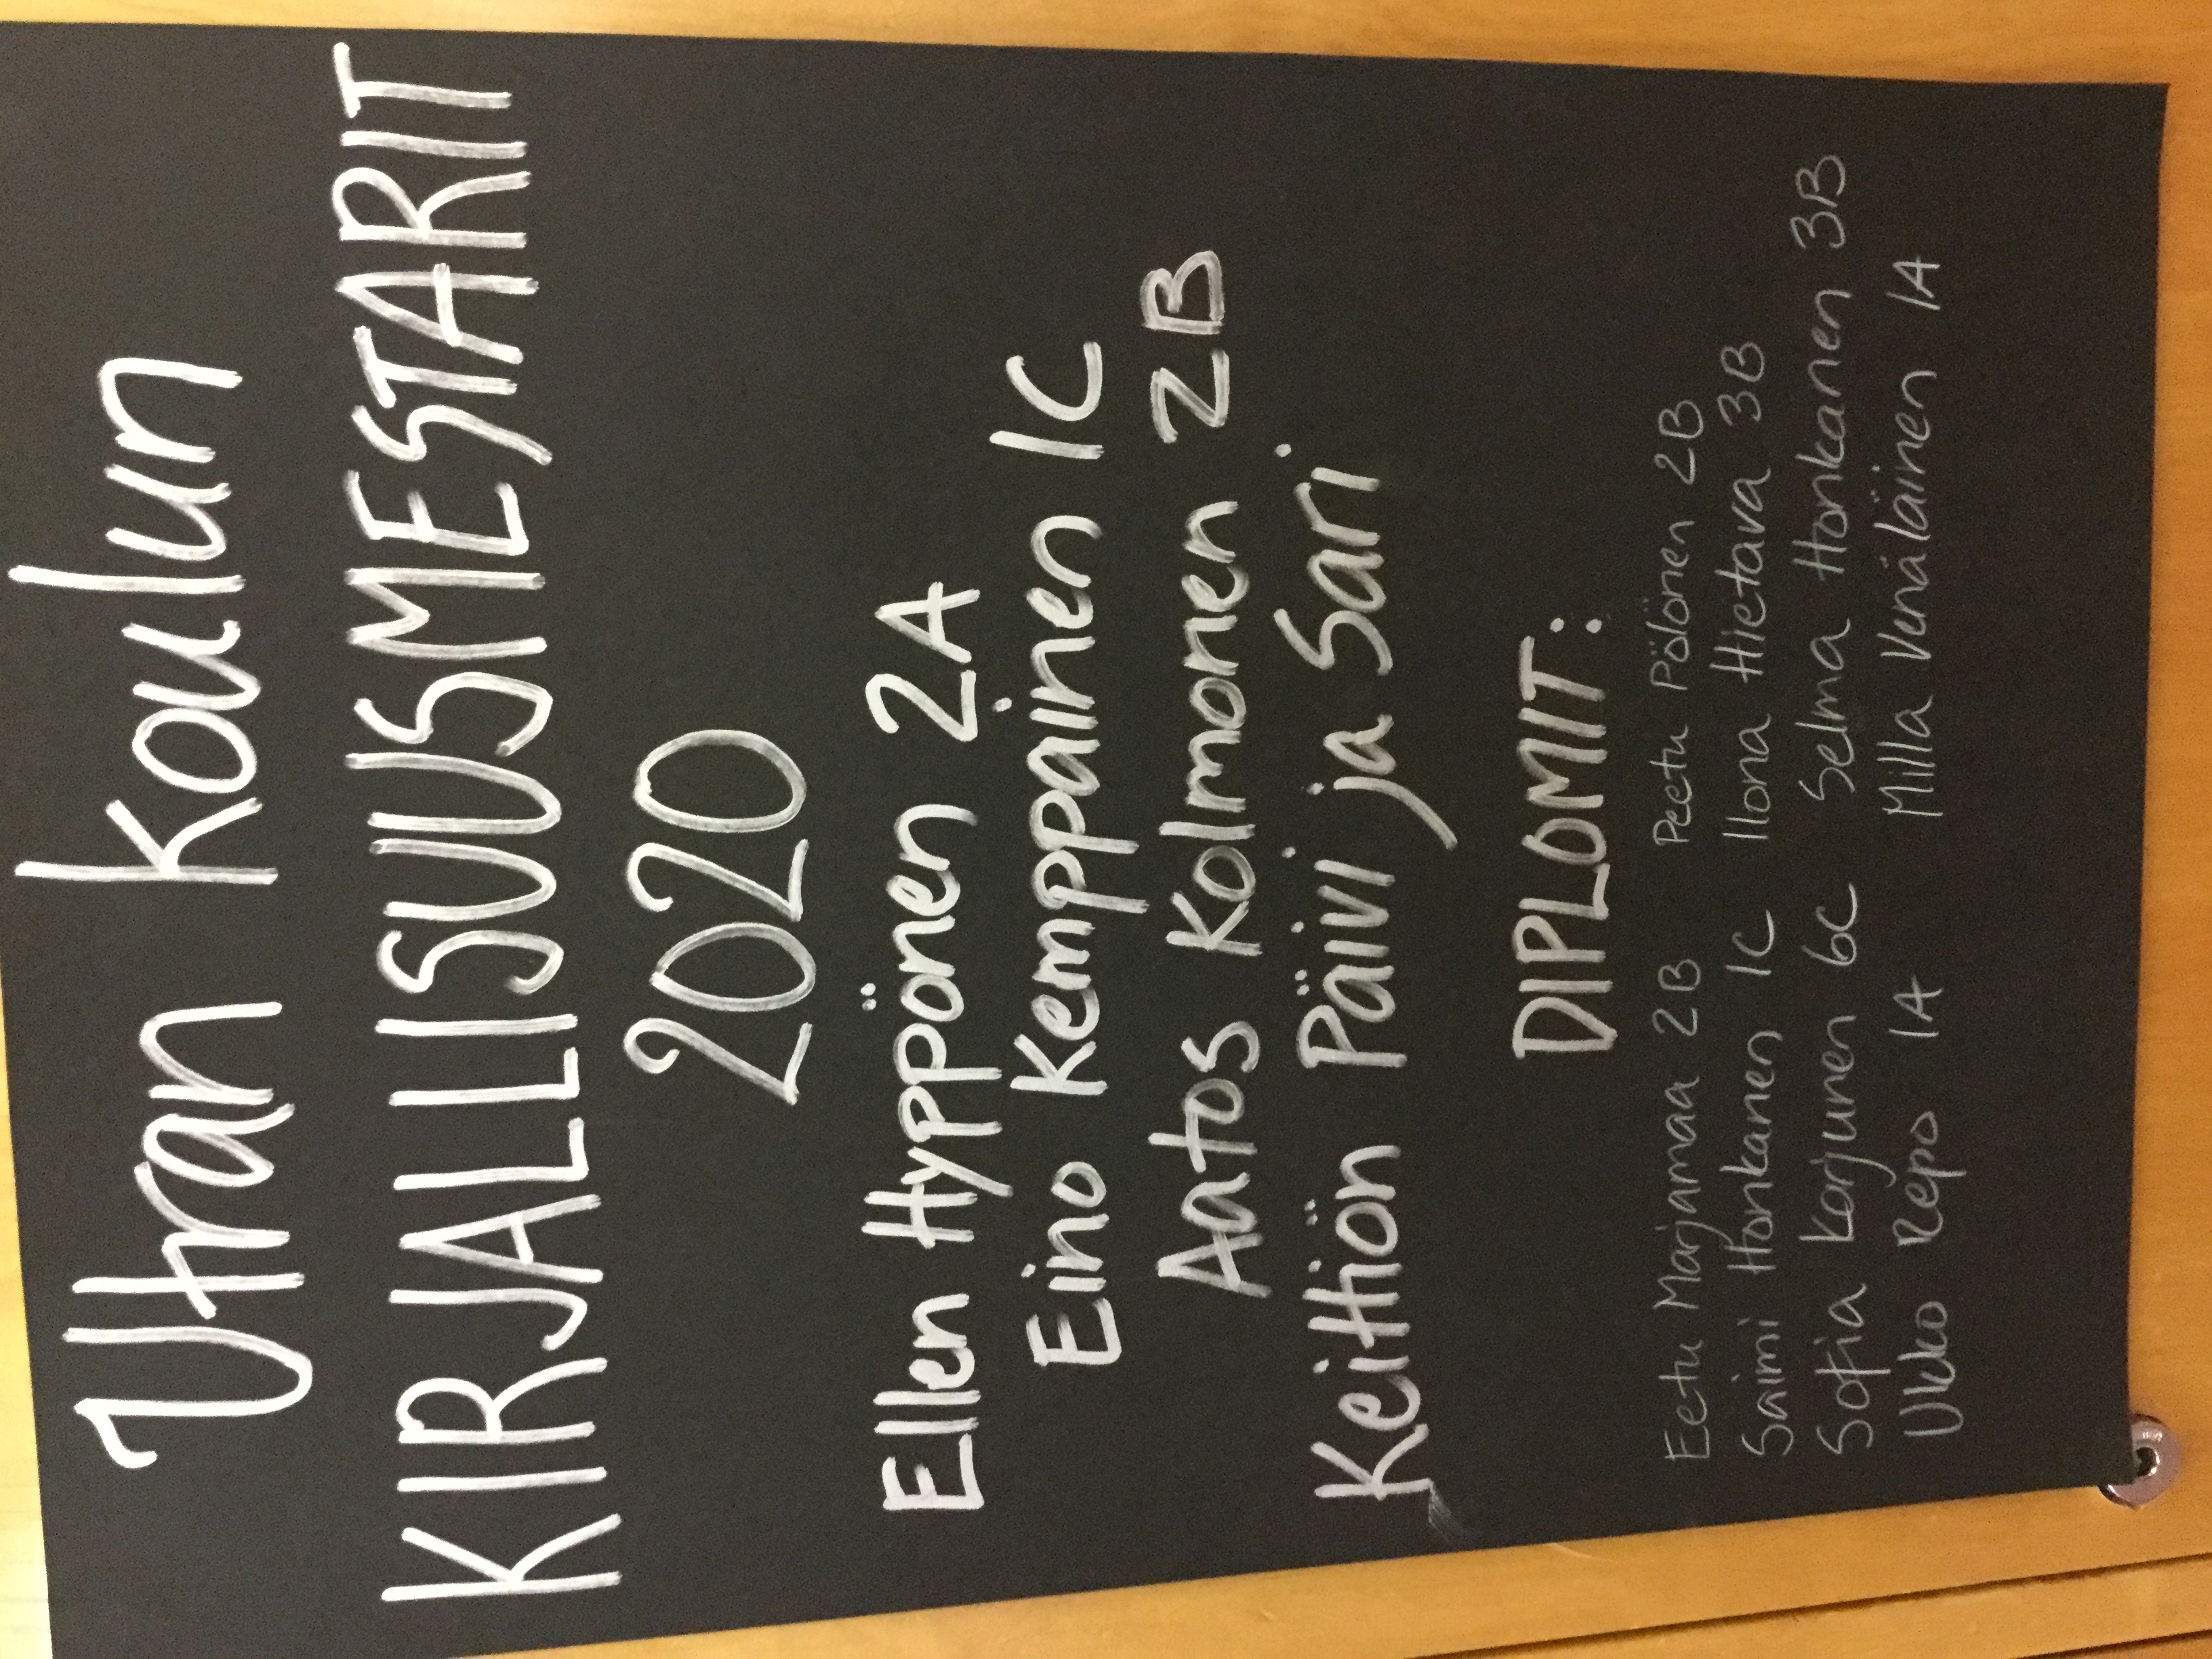 Utran Koulun
KIRJALLISUUSMESTARIT
2020
Ellen Hyppönen 2A
Eino Kemppainen 1C
Aatos Kolmonen 2B
Keittiön Päivi ja Sari
DIPLOMIT:
Eetu Marjamaa 2B Peetu Pölönen 2B
Saimi Honkanen 1C Ilona Hietava 3B
Sofia Korjunen 6C Selma Honkanen 3B
Ukko Repo 1A Milla Venäläinen 1A